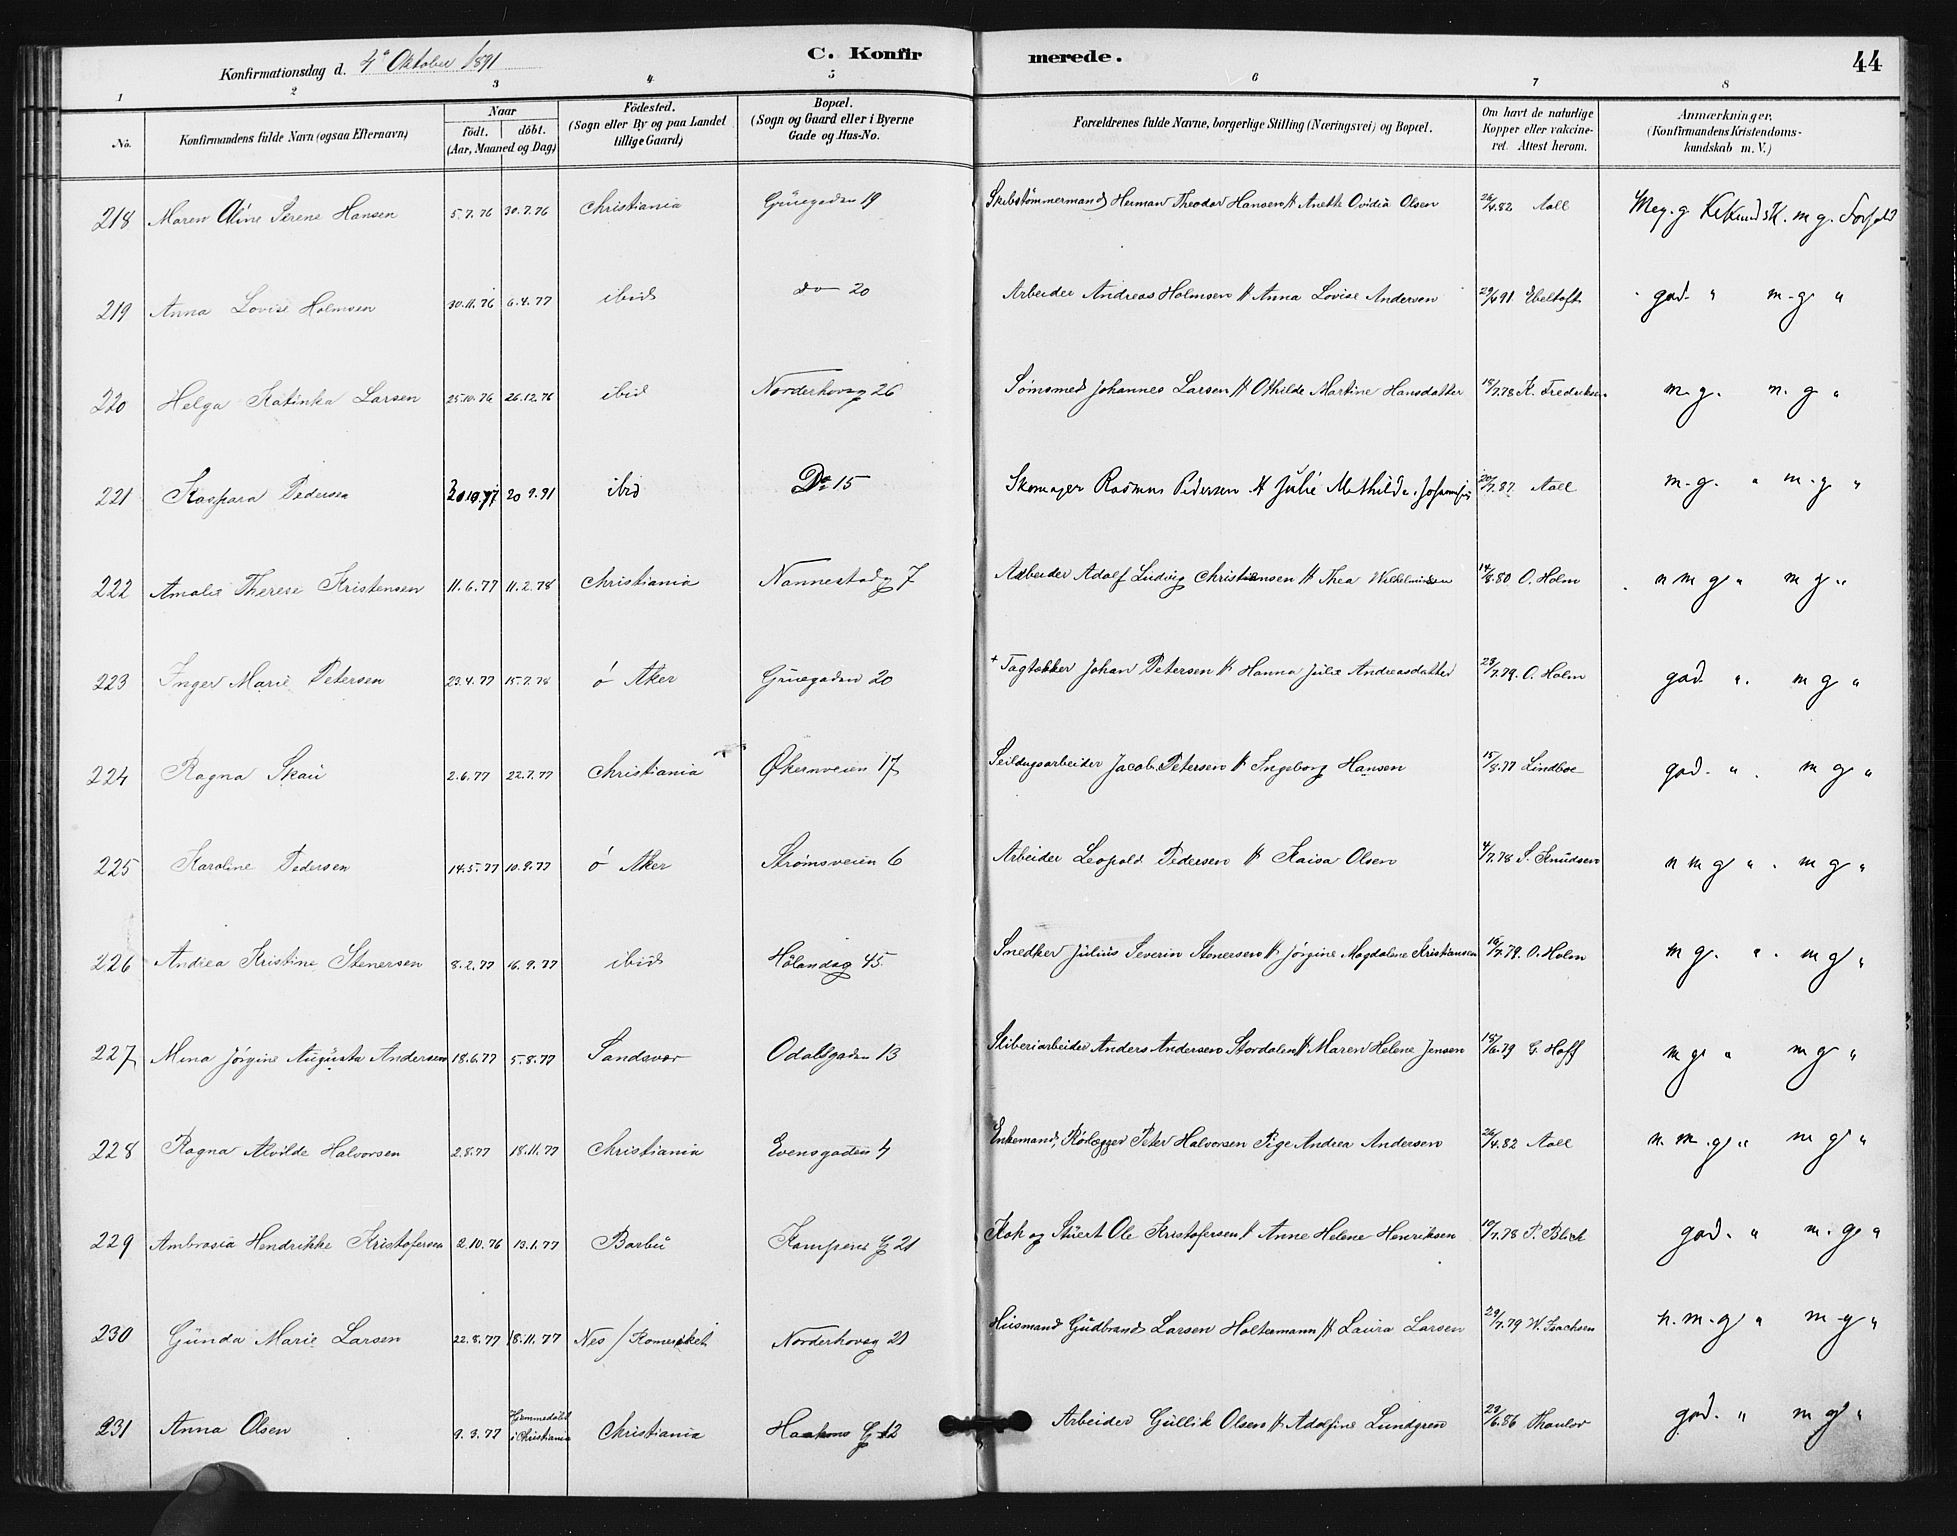 Konfirmationsdag d. 4de Oktober 1891
C. Konfirmerede.
44
1 2 3 4 5 6 7 8
No. Konfirmandens fulde Navn (ogsaa Efternavn) Naar födt. döbt. (Aar, Maaned og Dag) Födested. (Sogn eller By og paa Landet tillige Gaard) Bopæl. (Sogn og Gaard eller i Byerne Gade og Hus-No. Forældrenes fulde Navne, borgerlige Stilling (Næringsvei) og Bopæl. Om havt de naturlige Kopper eller vakcineret. Attest herom. Anmærkninger, (Konfirmandens Kristendomskundskab m. V.)
218 Maren Oline Serene Hansen 5.7.76 30.7.76 Christiania Grüegaden 19 Skibstømmermand Herman Theodor Hansen H Anette Ovidia Olsen 26/4.82 Aall Meg. g. Kr.Kundsk. m g. Forhold
219 Anna Lovise Holmsen 30.11.76 6.4.77 ibid do 20 Arbeider Andreas Holmsen H Anna Lovise Andersen 29/6 91 Ebeltoft god. " m-g "
220 Helga Katinka Larsen 25.10.76 26.12.76 ibid Norderhovsg 26 Sømsmed Johannes Larsen H Othilde Martine Hansdatter 18/7.78 K. Fredriksen m-g. m. g "
221 Kaspara Pedersen 20 9.91 ibid Do 15 Skomager Rasmus Pedersen H Julie Mathilde 20/7.87 Aall m-g. " m-g "
222 Amalie Therese Kristensen 11.6.77 11.2.78 Christiania Nannestadg 7 Arbeider Adolf Ludvig Christiansen H Thea Wilhelminsen 14/8.80 O. Holm n m g " m g "
223 Inger Marie Petersen 23.4.77 15.7.78 ö Aker Grüegaden 20 + Tagtækker Johan Petersen H Hanna Julie Andreasdatter 23/7.79. O. Holm god. " m g "
224 Ragna Skau 2.6.77 22.7.77 Christiania Økernveien 17 Seildugsarbeider Jacob Petersen H Ingeborg Hansen 15/8.77 Lindboe god. " m g "
225 Karoline Pedersen 14.5.77 10.9.77 ö Aker Strømsveien 6 Arbeider Leopold Pedersen H Kaisa Olsen 4/7.78 S. Knudsen n m g " m g "
226 Andrea Kristine Stenersen 8.2.77 16.9.77 ibid Hölandsg 45 Snedker Julius Severin Stenersen H Jørgine Magdalene Kristiansen 16/7.79. O. Holm m g. " m g "
227 Mina Jørgine Augusta Andersen 18.6.77 5.8.77 Sandsvær Odalsgaden 13 Sliberiarbeider Anders Andersen Stordalen H Maren Helene Jensen 18/6.79 G. Hoff m g " m g "
228 Ragna Alvilde Halvorsen 2.8.77 18.11.77 Christiania Evensgaden 4 Enkemand, Rørlægger Peter Halvorsen Pige Andrea Andersen 26/4.82 Aall n. m. g " m g "
229 Ambrosia Hendrikke Kristofersen 2.10.76 13.1.77 Barbu Kampens G 21 Kok og Stuert Ole Kristofersen H Anne Helene Henriksen 10/7.78 P. Blich god. " m. g "
230 Günda Marie Larsen 22.8.77 18.11.77 Nes / Romeriket Norderhovsg 21 Husmand Gudbrand Larsen Holtermann H Laura Larsen 29/7.79 W. Isachsen n. m-g " m-g "
231 Anna Olsen 9.3.77 Hjemmedøbt i Christiania Christiania Haakons G 12 Arbeider Gullik Olsen H Adolfine Lundgren 23/6.86 Thaulow god. " m g "